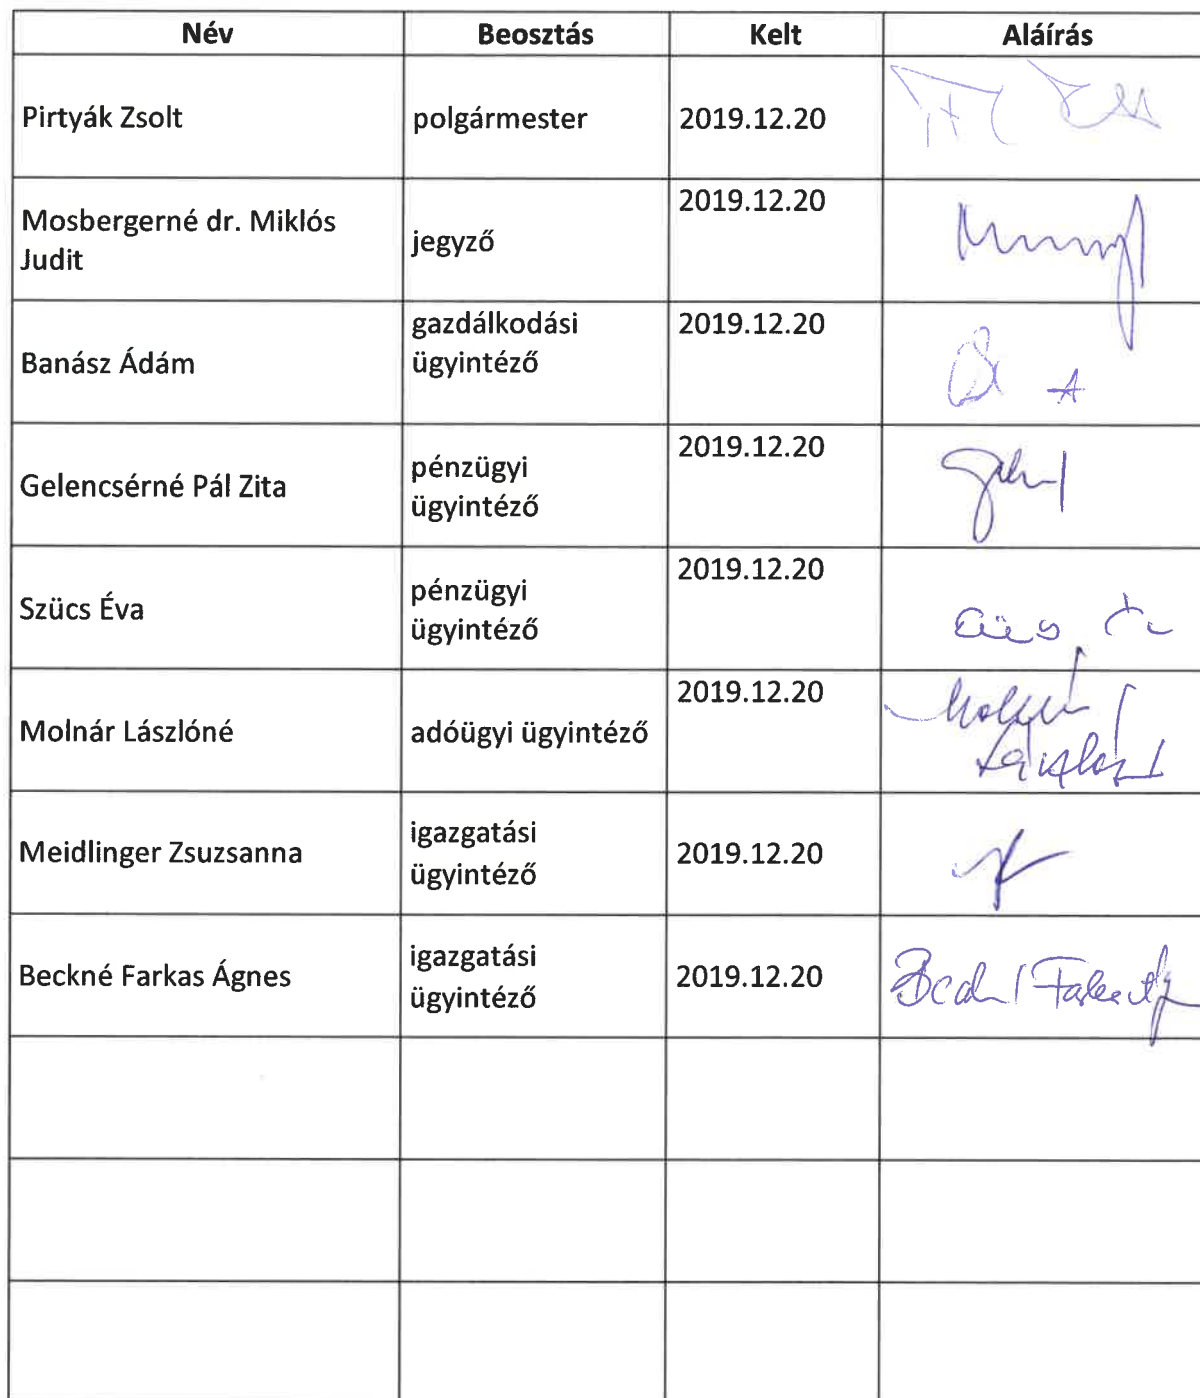 Név Beosztás Kelt Aláírás
Pirtyák Zsolt polgármester 2019.12.20
Mosbergerné dr. Miklós
Judit
jegyző
2019.12.20
Banász Ádám
gazdálkodási
ügyintéző
2019.12.20
Gelencsérné Pál Zita
pénzügyi
ügyintéző
2019.12.20
Szücs Éva
pénzügyi
ügyintéző
2019.12.20
Molnár Lászlóné adóügyi ügyintéző 2019.12.20
Meidlinger Zsuzsanna
igazgatási
ügyintéző
2019.12.20
Beckné Farkas Ágnes
igazgatási
ügyintéző
2019.12.20